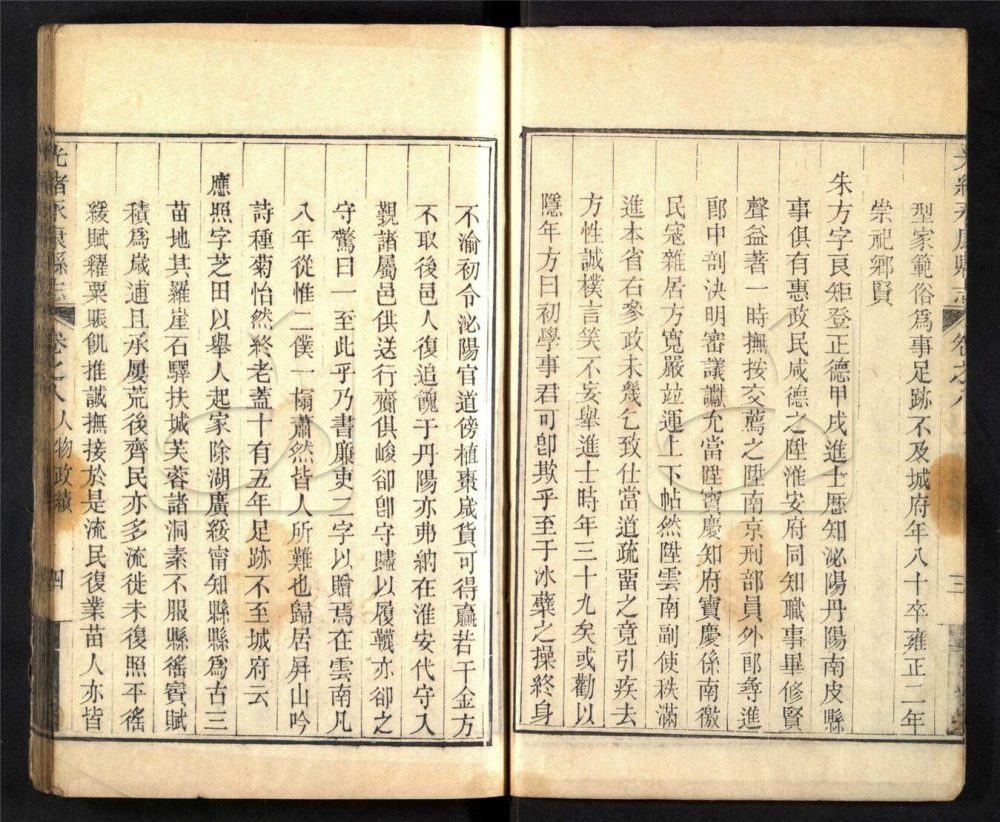 型家範俗爲事足跡不及城府年八十卒雍正二年
崇祀鄉賢
朱方字良矩登正德甲戌進士歷知泌陽丹陽南皮縣
事俱有惠政民咸德之陞淮安府同知職事畢修賢
聲益著一時撫按交薦之陞南京刑部員外郎尋進
郎中剖決明審議讞允當陞寶慶知府寶慶係南徼
民寇雜居方寬嚴竝運上下帖然陞雲南副使秩滿
進本省右參政未幾乞致仕當道疏畱之竟引疾去
方性誠樸言笑不妄舉進士時年三十九矣或勸以
隱年方曰初學事君可卽欺乎至于冰蘗之操終身
三
不渝初令泌陽官道傍植棗歲貨可得贏若干金方
不取後邑人復追餽于丹陽亦弗納在淮安代守入
覲諸屬邑供送行齎俱峻卻卽守贐以履韈亦卻之
守驚曰一至此乎乃書廉吏二字以贈焉在雲南凡
八年從惟二僕一榻蕭然皆人所難也歸居屏山吟
詩種菊怡然終老蓋十有五年足跡不至城府云
應照字芝田以舉人起家除湖廣綏甯知縣縣爲古三
苗地其羅崖石驛扶城芙蓉諸洞素不服縣徭賨賦
積爲歲逋且承屢荒後齊民亦多流徙未復照平徭
緩賦糴粟賑飢推誠撫接於是流民復業苗人亦皆
光緒永康縣志 卷之八人物政績 四